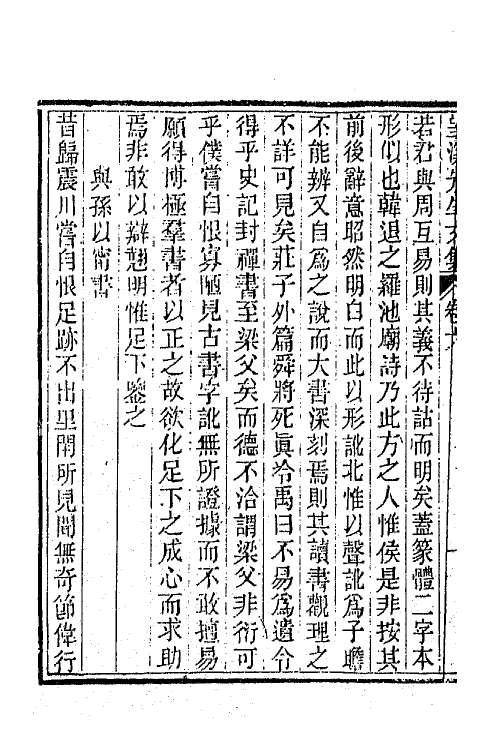 望溪先生文集 卷六
若君與周互易則其義不待詁而明矣蓋篆體二字本
形似也韓退之羅池廟詩乃此方之人惟侯是非按其
前後辭意昭然明白而此以形訛北惟以聲訛爲子瞻
不能辨又自爲之說而大書深刻焉則其讀書觀理之
不詳可見矣莊子外篇舜將死眞泠禹曰不易爲遺令
得乎史記封禪書至梁父矣而德不洽謂梁父非衍可
乎僕嘗自恨寡陋見古書字訛無所證據而不敢擅易
願得博極羣書者以正之故欲化足下之成心而求助
焉非敢以辯翹明惟足下鑒之
與孫以甯書
昔歸震川嘗自恨足跡不出里閈所見聞無奇節偉行